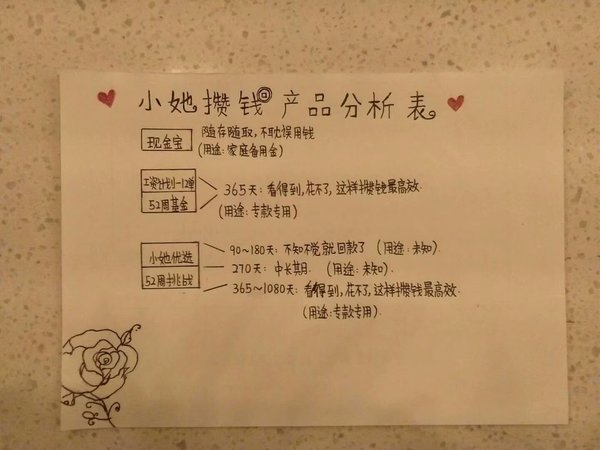 小她攒钱产品分析表
现金宝
随存随取,不耽误用钱
(用途:家庭备用金)
工资计划-12单
52周基金
365天:看得到,花不了,这样攒钱最高效.
(用途:专款专用)
小她优选
52周挑战
90~180天:不知不觉就回款了(用途:未知).
270天:中长期.(用途:未知).
365~1080天:看得到,花不了,这样攒钱最高效.
(用途:专款专用).